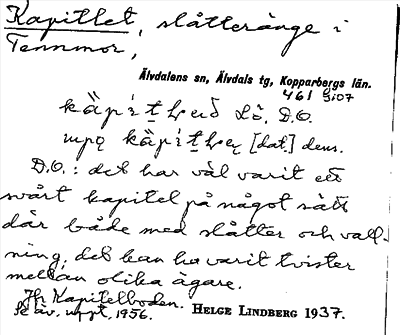 Kapitlet, slåtteränge i
Tennmor,
Älvdalens sn, Älvdals tg, Kopparbergs län.
461 G:07
D.O.
[dat.] dens.
D.O.: det har väl varit ett
svårt kapitel på något sätt
där både med slåtter och vall-
ning, det kan ha varit tvister
mellan olika ägare.
Jfr Kapitelboden.
Se äv. uppt. 1956. HELGE LINDBERG 1937.